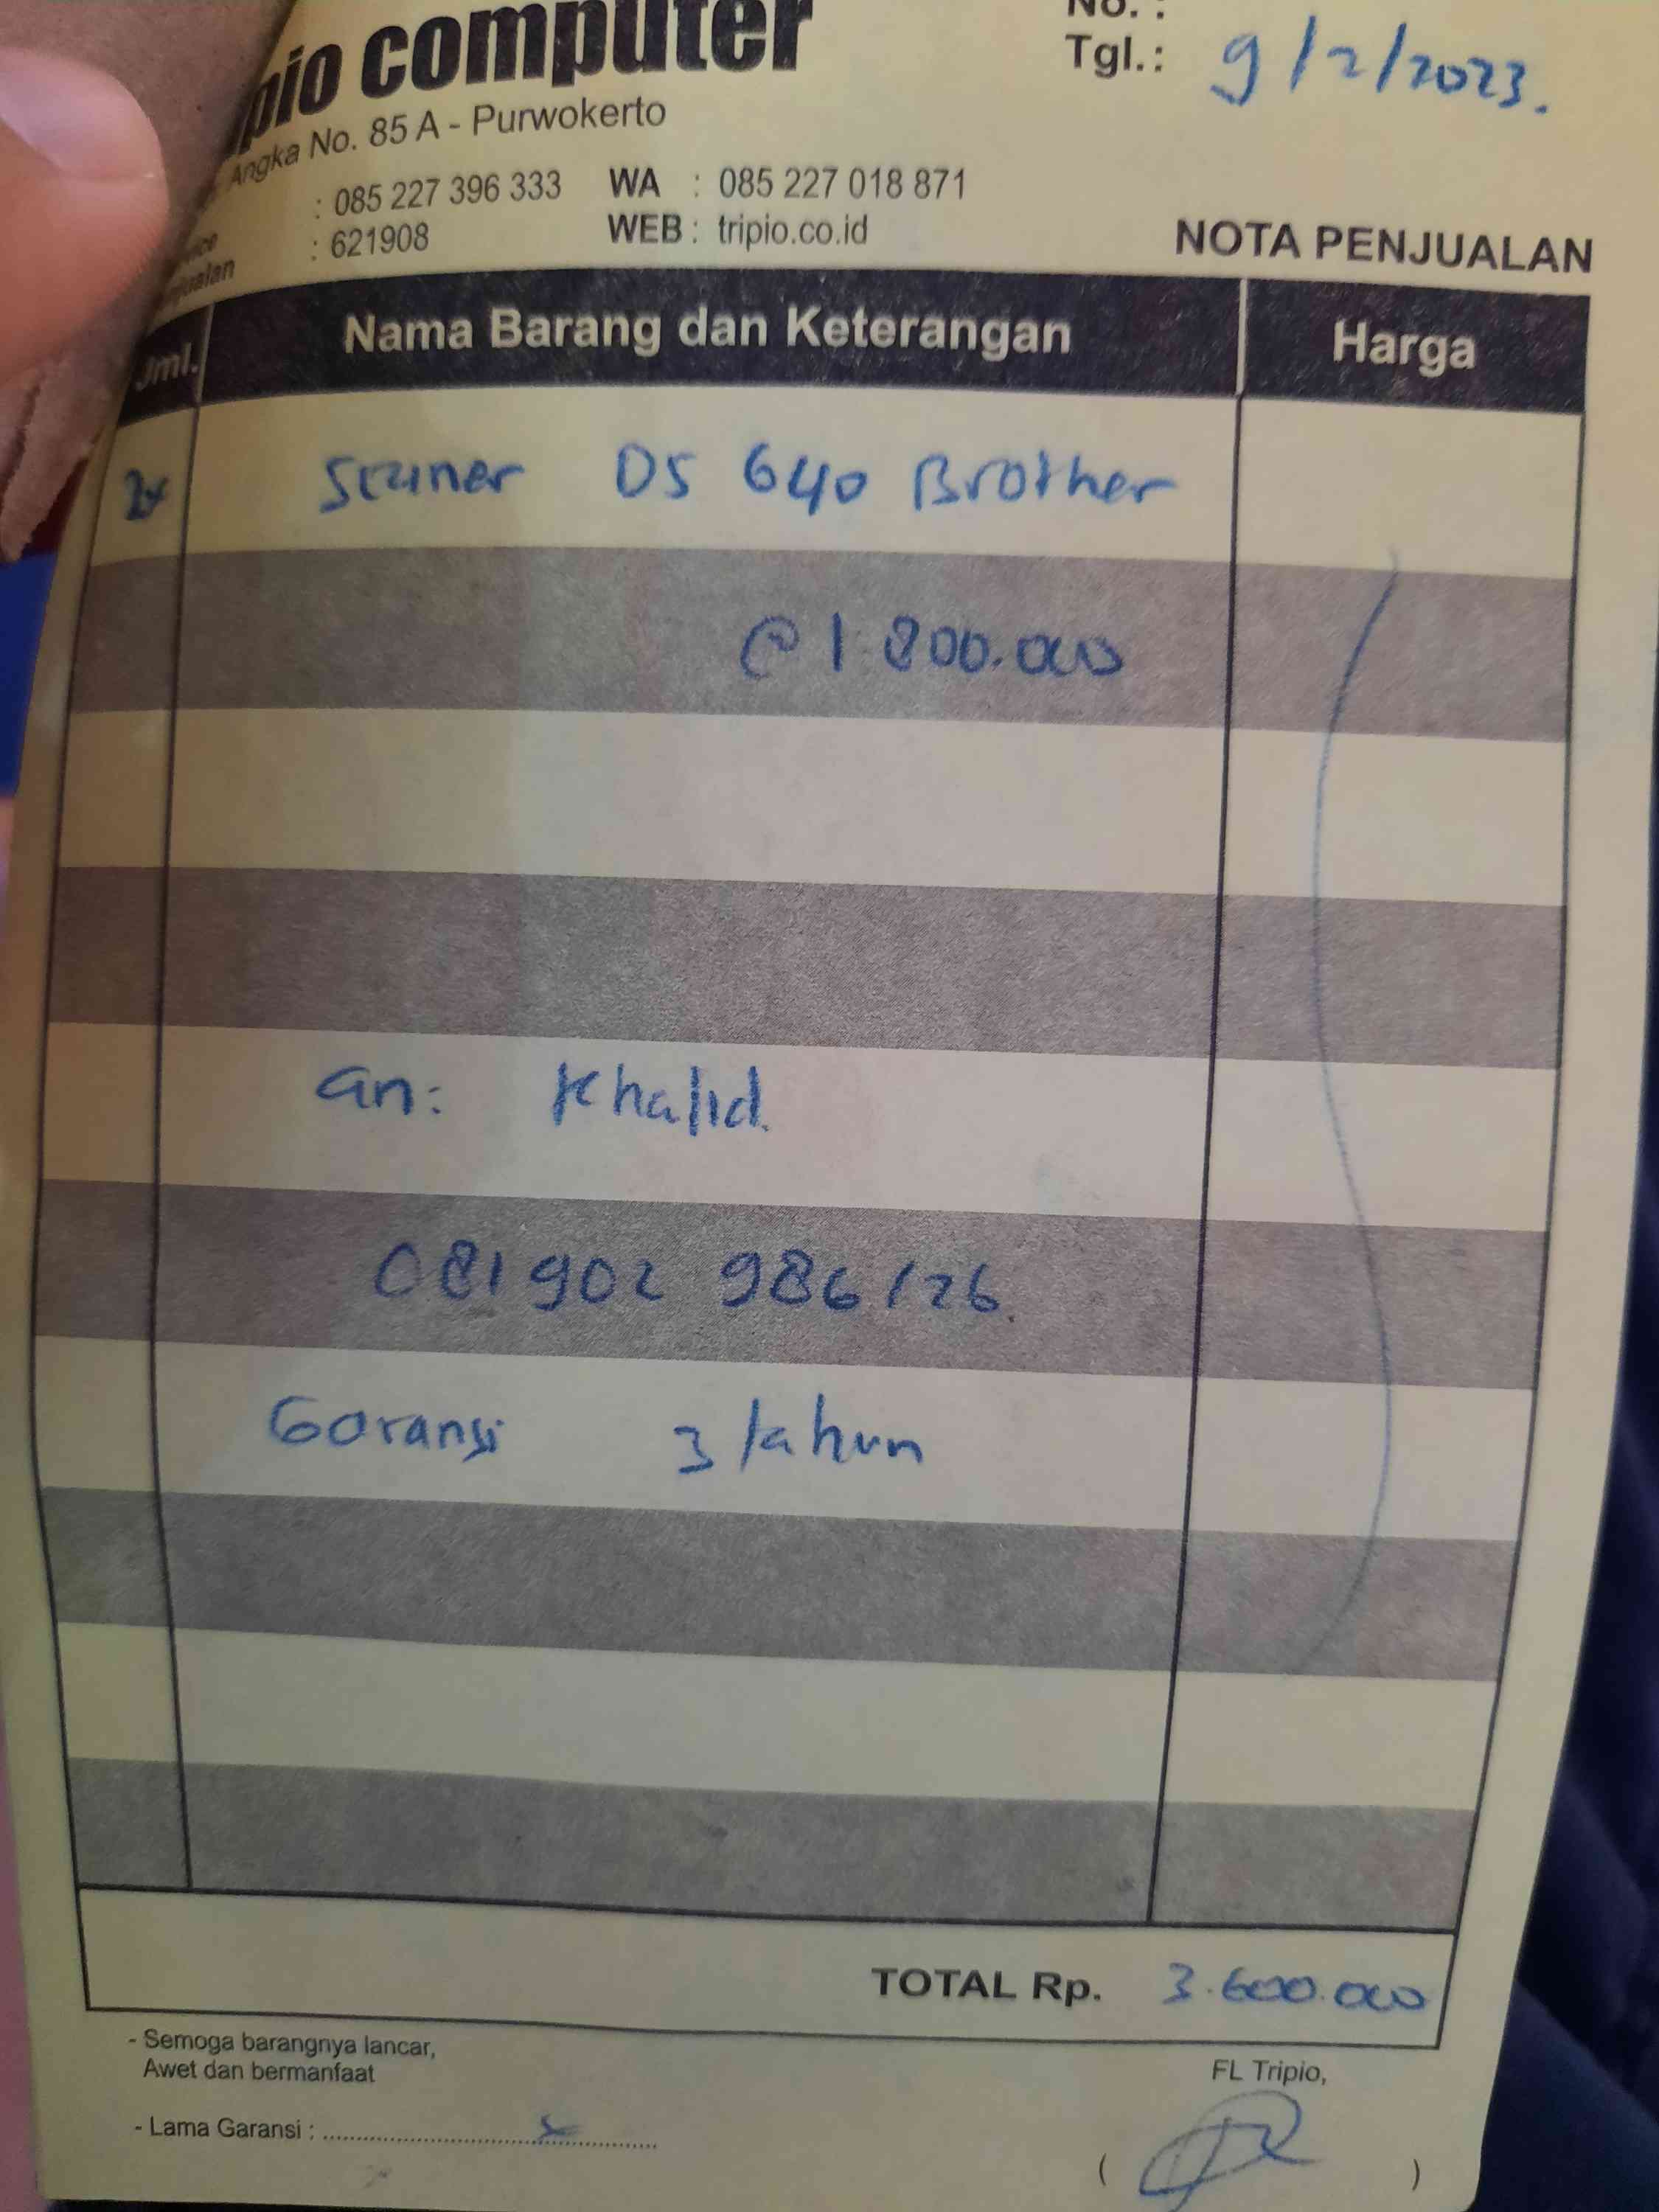 pio computer
No. :
Tgl.: 9/2/2023.
Angka No. 85 A - Purwokerto
: 085 227 396 333 WA : 085 227 018 871
: 621908 WEB : tripio.co.id
NOTA PENJUALAN
Jml. Nama Barang dan Keterangan Harga
2x Scaner DS 640 Brother
@ 1.800.000
an: Khalid.
081902 986126.
Goransi 3 tahun
TOTAL Rp. 3.600.000
- Semoga barangnya lancar,
Awet dan bermanfaat
FL Tripio,
- Lama Garansi :
( )